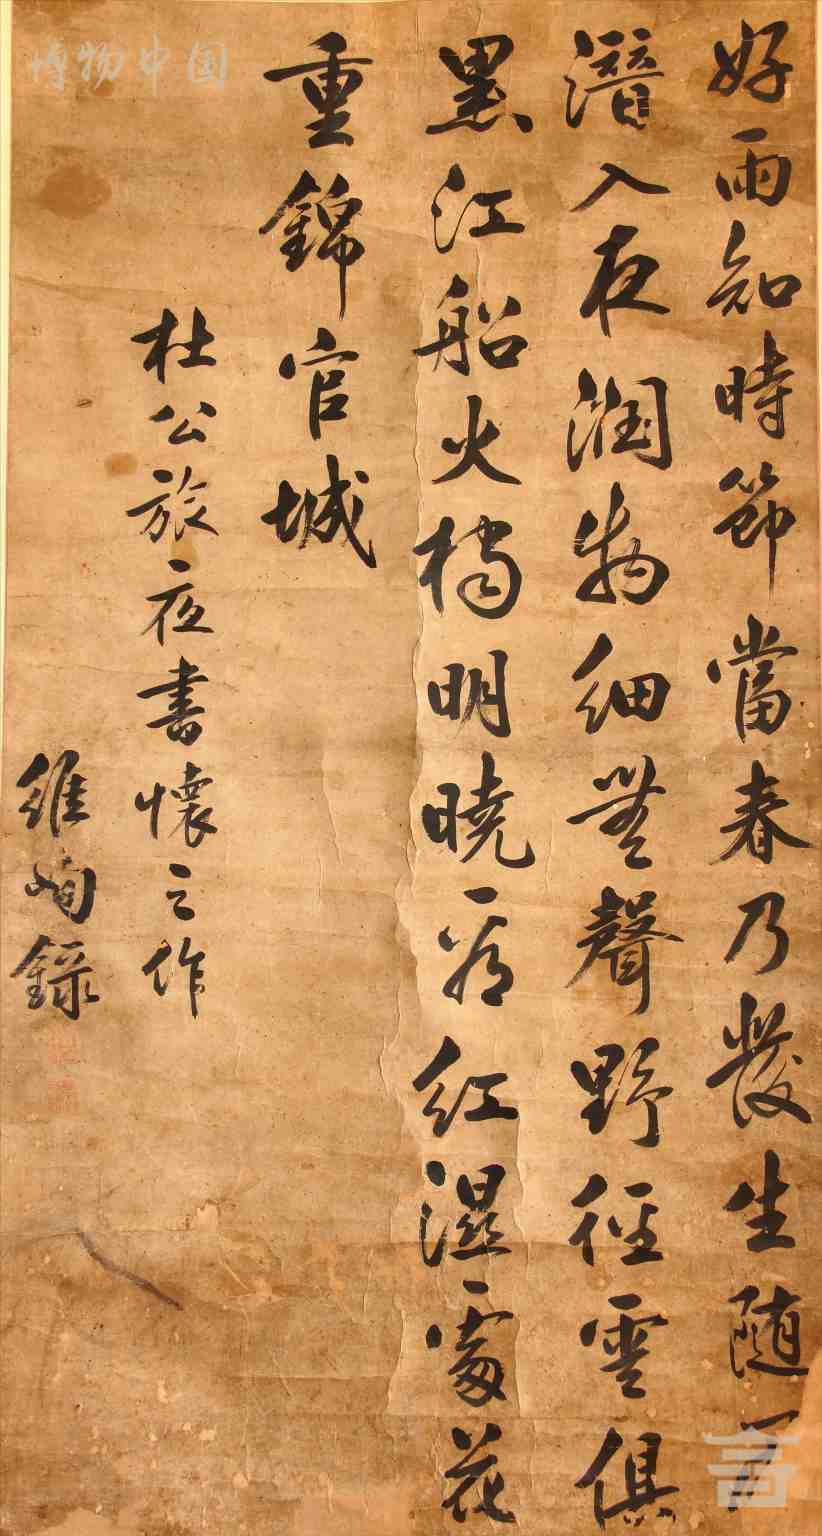 博物中国
好雨知時節當春乃發生隨風
潛入夜潤物細無聲野徑雲俱
黑江船火獨明曉看紅濕處花
重錦官城
杜公旅夜書懷之作
維錄